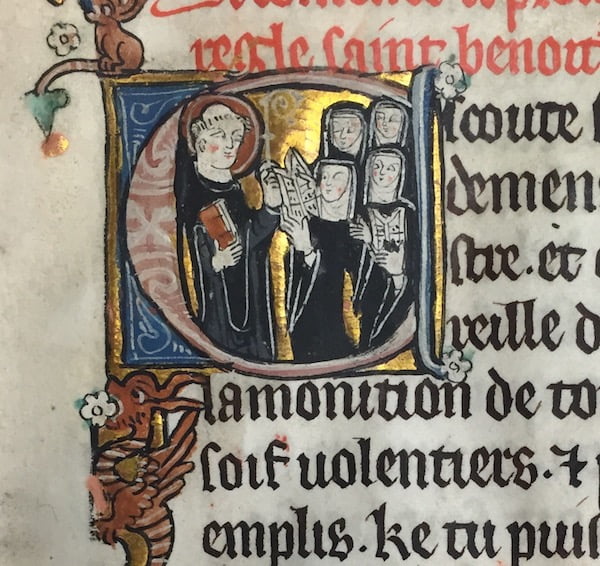 regle saint benoit
Escoute
demen
stre. et
reille d
lamonition de to
soif uolentiers. ⁊ p
emplis. ke tu puis